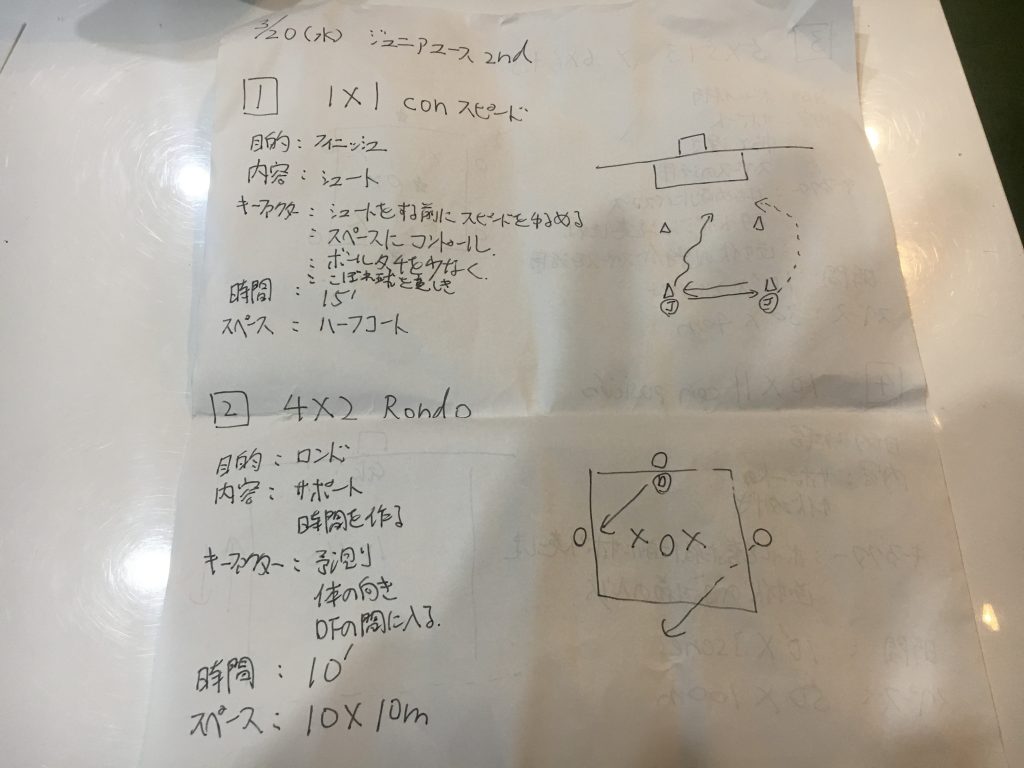 3/20(水) ジュニアユース 2nd
1 1×1 con スピード
目的：フィニッシュ
内容：シュート
キーファクター：シュートをする前にスピードをゆるめる
：スペースにコントロール
：ボールタッチを少なく
：こぼれ球を
時間：15'
スペース：ハーフコート
2 4×2 Rondo
目的：ロンド
内容：サポート
時間を作る
キーファクター：予測り
体の向き
DFの間に入る.
時間：10'
スペース：10×10m